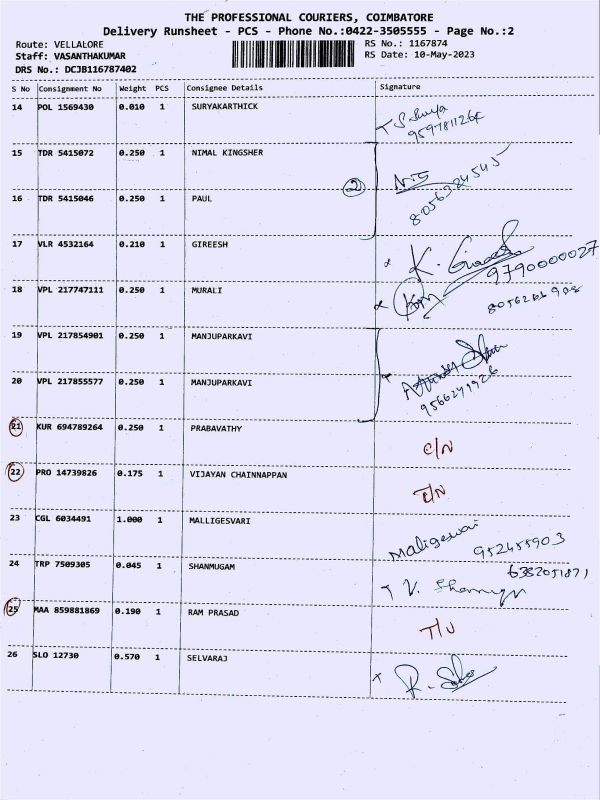 THE PROFESSIONAL COURIERS, COIMBATORE
Delivery Runsheet - PCS - Phone No.:0422-3505555 - Page No.:2
Route: VELLALORE RS No.: 1167874
Staff: VASANTHAKUMAR RS Date: 10-May-2023
DRS No.: DCJB116787402
S No Consignment No Weight PCS Consignee Details Signature
14 POL 1569430 0.010 1 SURYAKARTHICK
15 TDR 5415072 0.250 1 NIMAL KINGSHER
2
8056324545
16 TDR 5415046 0.250 1 PAUL
17 VLR 4532164 0.210 1 GIREESH
K. Gireesh
9790000027
18 VPL 217747111 0.250 1 MURALI
19 VPL 217854901 0.250 1 MANJUPARKAVI
20 VPL 217855577 0.250 1 MANJUPARKAVI
9566291926
21 KUR 694789264 0.250 1 PRABAVATHY
C/N
22 PRO 14739826 0.175 1 VIJAYAN CHAINNAPPAN
23 CGL 6034491 1.000 1 MALLIGESVARI
952455903
24 TRP 7509305 0.045 1 SHANMUGAM
6382051871
25 MAA 859881869 0.190 1 RAM PRASAD
26 SLO 12730 0.570 1 SELVARAJ